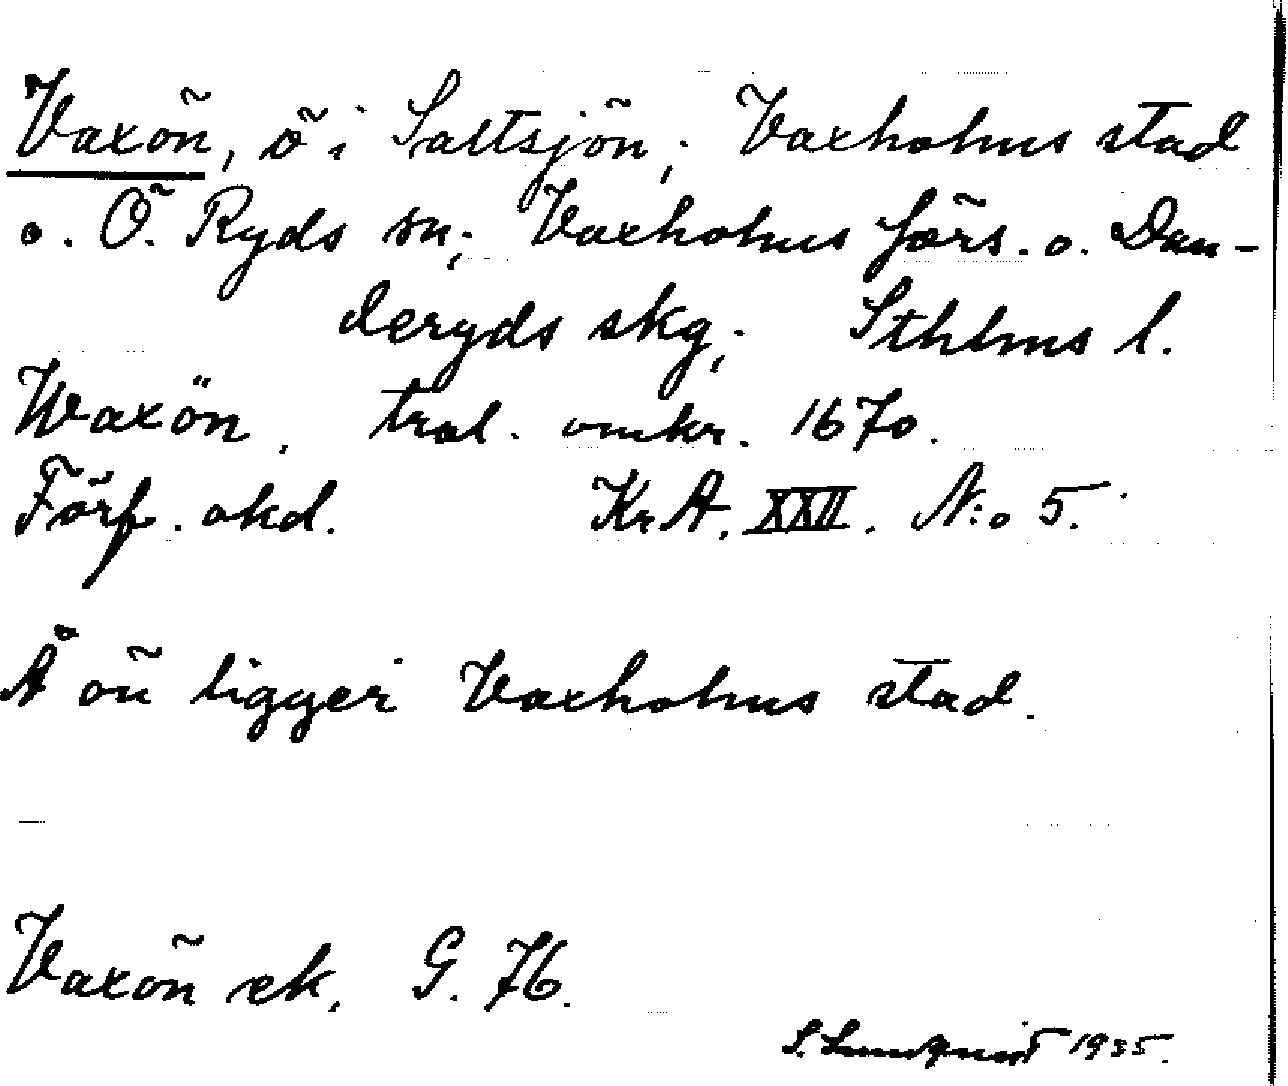 Vaxön, ö i Saltsjön; Vaxholms stad
o. Ö. Ryds sn; Vaxholms förs. o. Dan-
deryds skg; Sthlms l.
Waxön. tral. omkr. 1670.
Förf. okd. Kr. A. XXII. N:o 5.
Å ön ligger Vaxholms stad.
Vaxön ek. G. 76.
S. Lundqvist 1935.